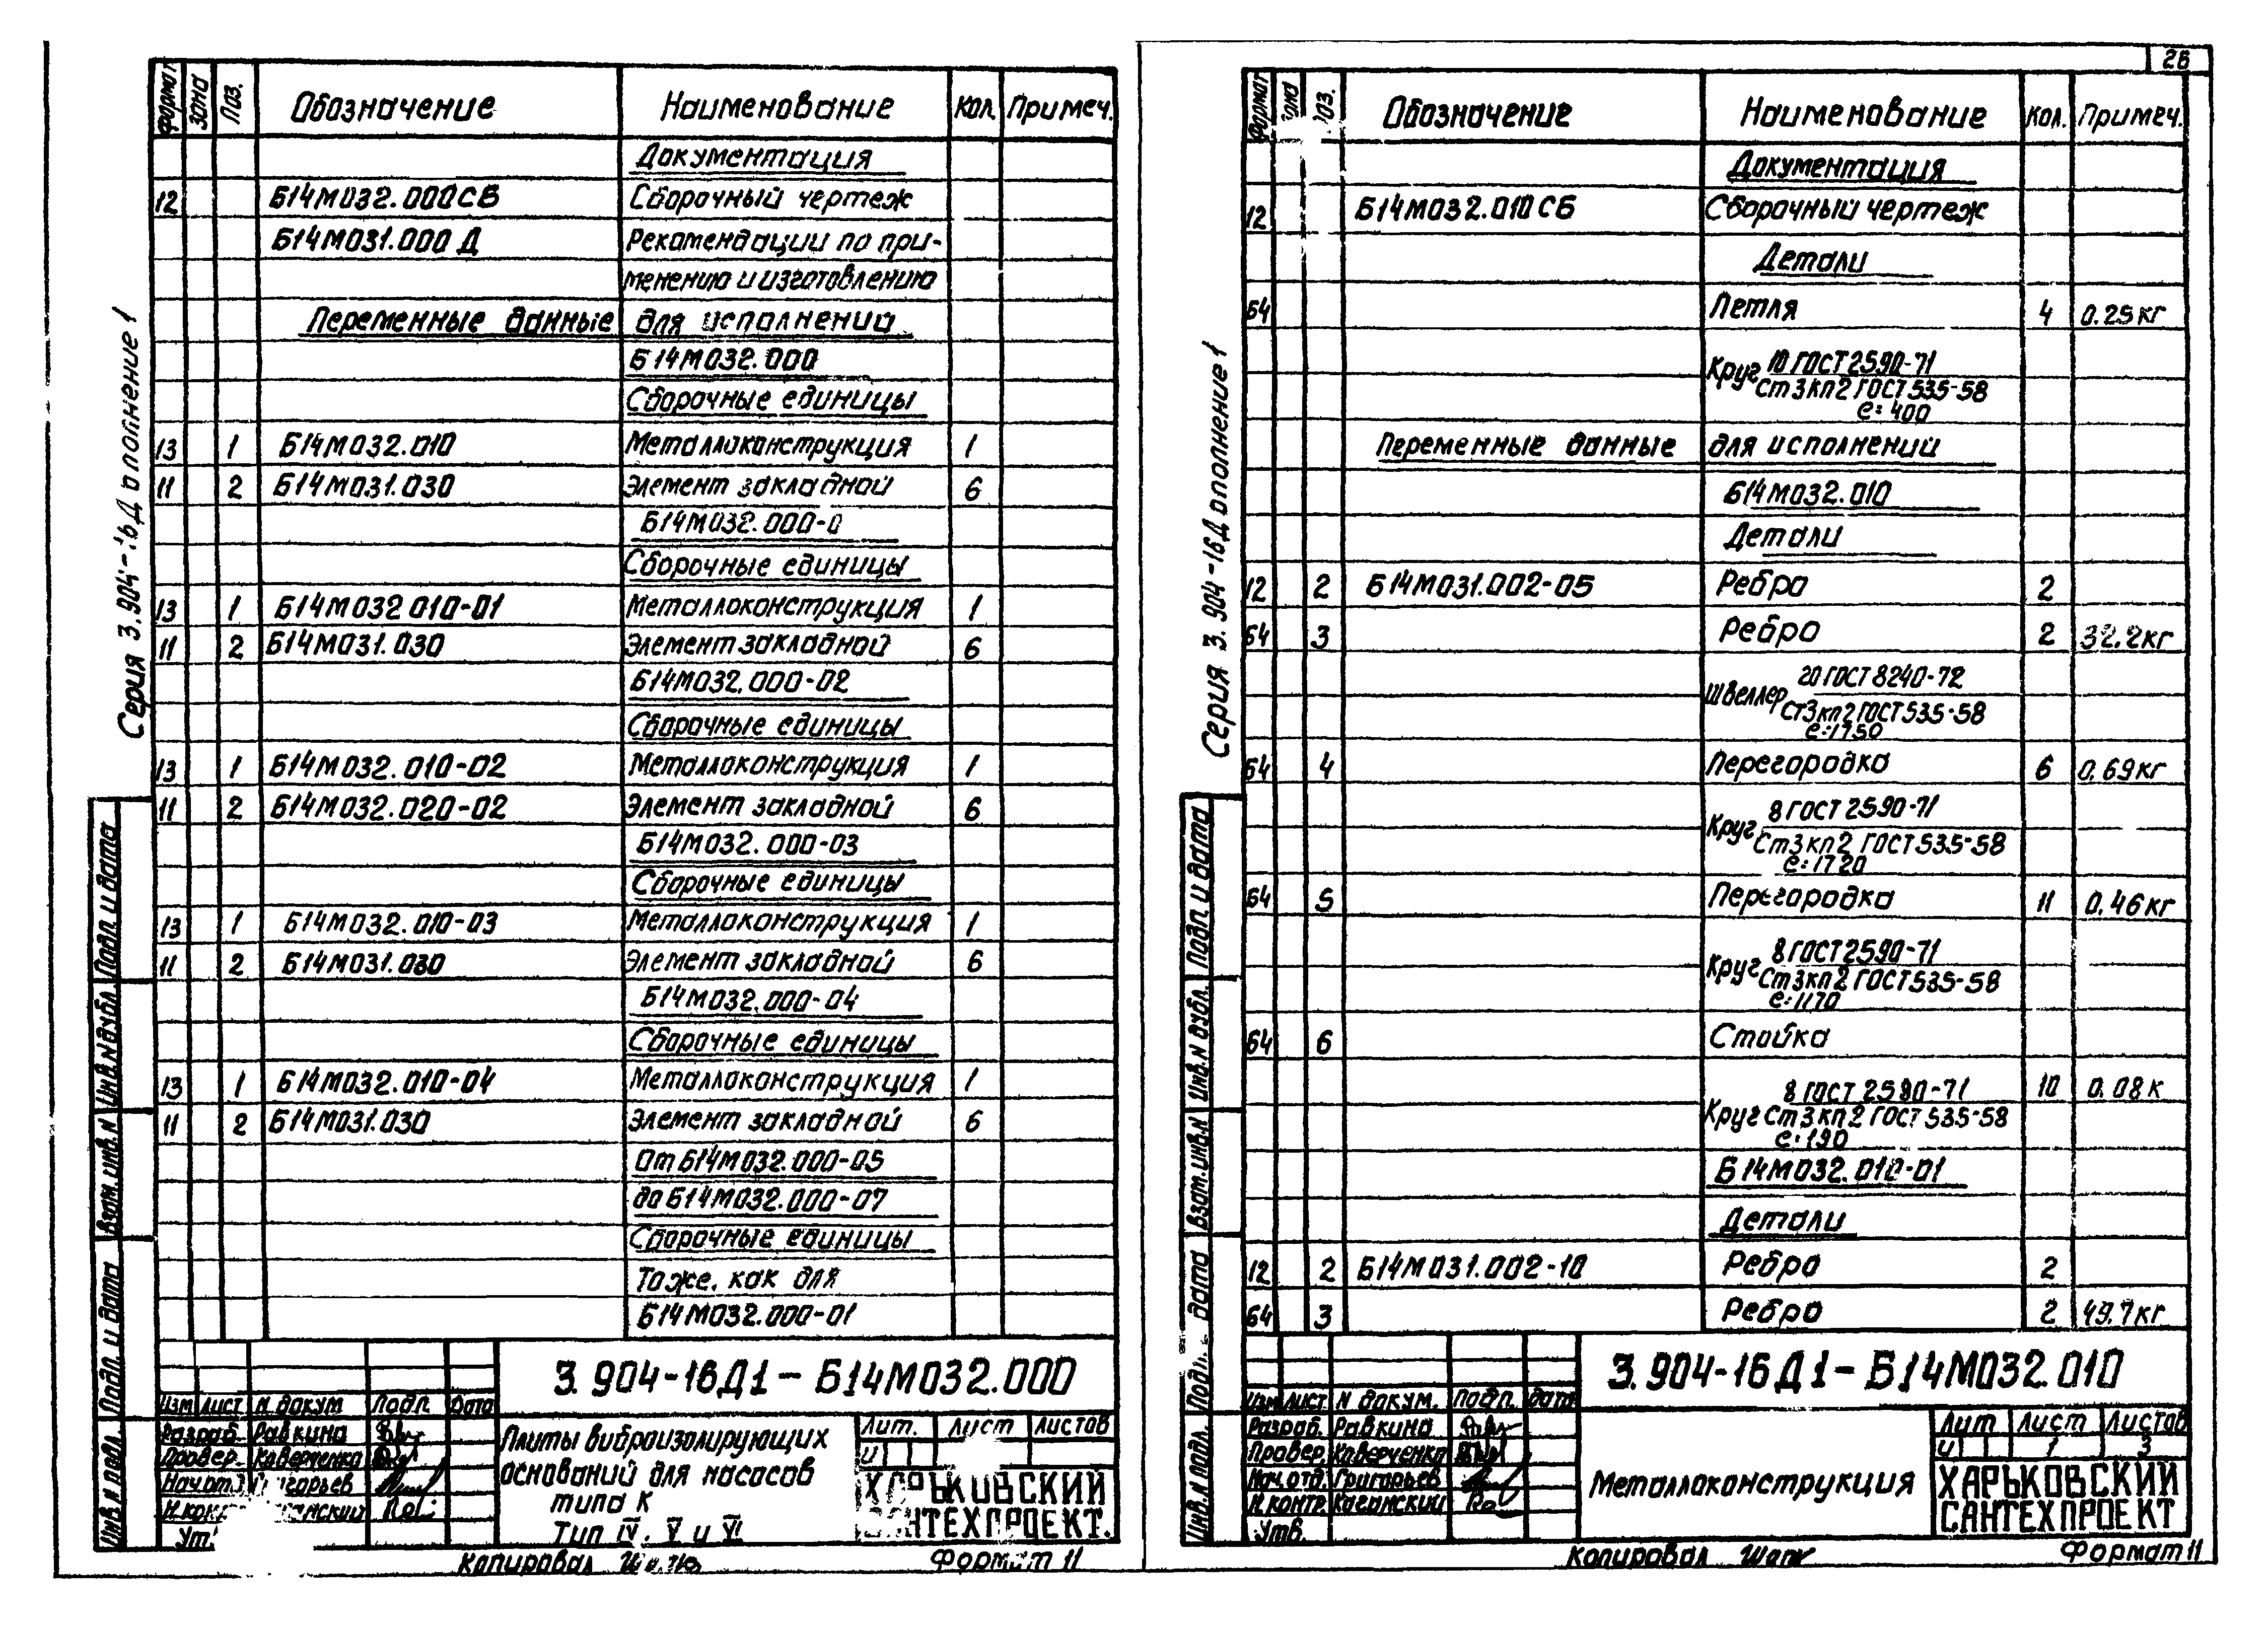 Серия 3.904-16Д ополнение 1
Формат Зона Поз. Обозначение Наименование Кол. Примеч.
Документация
12 Б14М032.000СБ Сборочный чертеж
Б14М031.000 Д Рекомендации по при-
менению и изготовлению
Переменные данные для исполнений
Б14М032.000
Сборочные единицы
13 1 Б14М032.010 Металлоконструкция 1
11 2 Б14М031.030 Элемент закладной 6
Б14М032.000-0
Сборочные единицы
13 1 Б14М032 010-01 Металлоконструкция 1
11 2 Б14М031.030 Элемент закладной 6
Б14М032.000-02
Сборочные единицы
13 1 Б14М032.010-02 Металлоконструкция 1
11 2 Б14М032.020-02 Элемент закладной 6
Б14М032.000-03
Сборочные единицы
13 1 Б14М032.010-03 Металлоконструкция 1
11 2 Б14М031.030 Элемент закладной 6
Б14М032.000-04
Сборочные единицы
13 1 Б14М032.010-04 Металлоконструкция 1
11 2 Б14М031.030 Элемент закладной 6
От Б14М032.000-05
до Б14М032.000-07
Сборочные единицы
Тоже, как для
Б14М032.000-01
Подп. и дата
Инв.N дубл.
Взам.инв.N
Подп. и дата
Инв.N подл.
3.904-16Д1-Б14М032.000
Изм Лист N докум Подп. Дата
Разраб. Равкина
Провер. Каверченко
Нач.от Григорьев
Н.кон
Ут.
Плиты виброизолирующих
оснований для насосов
типа К
Тип IV, V и VI
Лит. Лист Листов
И
ХАРЬКОВСКИЙ
САНТЕХПРОЕКТ.
Копировал
Формат 11
26
Серия 3.904-16Д ополнение 1
Формат Зона Поз. Обозначение Наименование Кол. Примеч.
Документация
12 Б14М032.010СБ Сборочный чертеж
Детали
Б4 Петля 4 0.25кг
Круг 10 ГОСТ 2590-71
Ст3кп2 ГОСТ 535-58
е=400
Переменные данные для исполнений
Б14М032.010
Детали
12 2 Б14М031.002-05 Ребро 2
Б4 3 Ребро 2 32.2кг
Швеллер 20 ГОСТ 8240-72
Ст3кп2 ГОСТ 535-58
е=1750
Б4 4 Перегородка 6 0.69кг
Круг 8 ГОСТ 2590-71
Ст3кп2 ГОСТ 535-58
е=1720
Б4 5 Перегородка 11 0.46кг
Круг 8 ГОСТ 2590-71
Ст3кп2 ГОСТ 535-58
е=1170
Б4 6 Стойка
8 ГОСТ 2590-71 10 0.08к
Круг Ст3кп2 ГОСТ 535-58
е=190
Б14М032.010-01
Детали
12 2 Б14М031.002-10 Ребро 2
Б4 3 Ребро 2 49.7кг
Подп. и дата
Инв.N дубл.
Взам.инв.N
Подп. дата
Инв.N подл.
3.904-16Д1-Б14М032.010
Изм Лист N докум. Подп. Дата
Разраб. Равкина
Провер. Каверченко
Нач.отд. Григорьев
Н.контр. Каганский
Утв.
Металлоконструкция
Лит Лист Листов
И 1 3
ХАРЬКОВСКИЙ
САНТЕХПРОЕКТ
Копировал
Формат 11